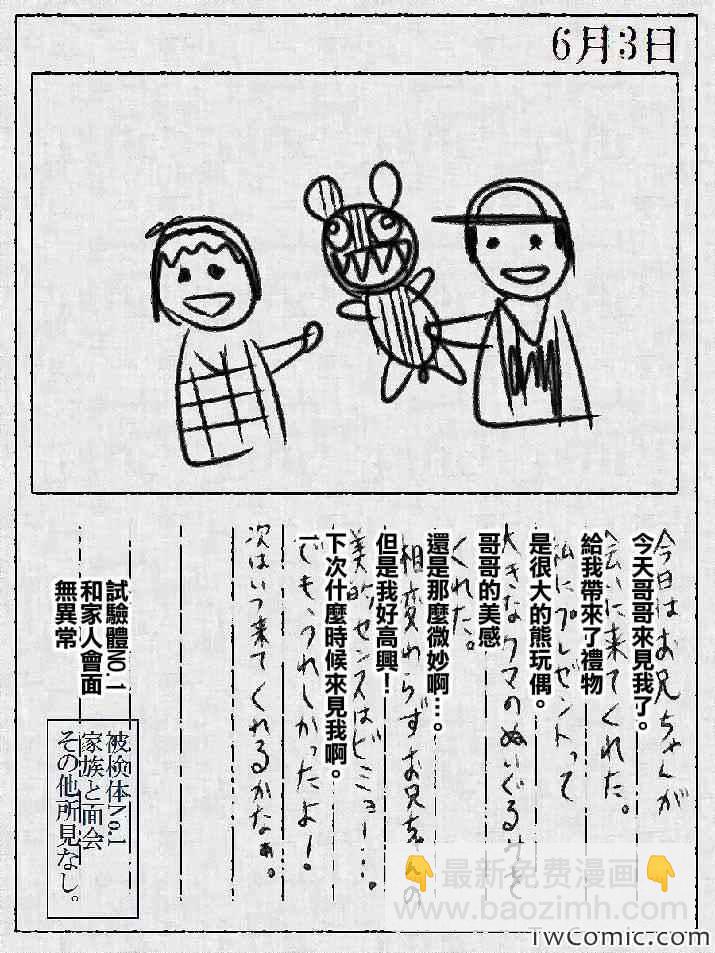 6月3日
今日はお兄ちゃんが
会いに来てくれた。
私にプレゼントって
大きなクマのぬいぐるみを
くれた。
相変わらずお兄ちゃんの
美的センスはビミョー…。
でも、うれしかったよー!
次はいつ来てくれるかなぁ。
今天哥哥來見我了。
給我帶來了禮物
是很大的熊玩偶。
哥哥的美感
還是那麼微妙啊…。
但是我好高興!
下次什麼時候來見我啊。
試驗體NO.1
和家人會面
無異常
被検体No.1
家族と面会
その他所見なし。
👇最新免费漫画👇
www.baozimh.com
TwComic.com